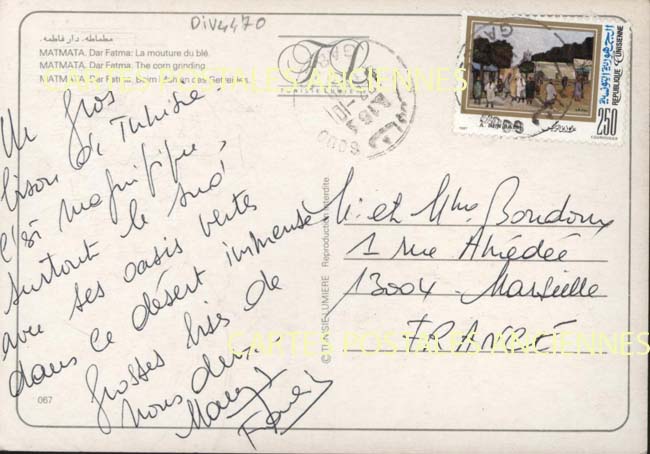 Div4470
مطماطه. دار فاطمه.
MATMATA. Dar Fatma: La mouture du blé.
MATMATA. Dar Fatma: The corn grinding
MATMATA. Dar Fatma: Beim Mahlen des Getreides.
Un gros
bisou de Tunisie
c'est magnifique,
surtout le sud
avec ses oasis vertes
dans ce désert immense
Grosses bises de
nous deux
067
© TUNISIE-LUMIERE Reproduction interdite
الجمهورية التونسية
REPUBLIQUE TUNISIENNE
250
M. et Mme Bondoux
1 rue Amédée
13004 Marseille
FRANCE
CARTES POSTALES ANCIENNES
CARTES POSTALES ANCIENNES